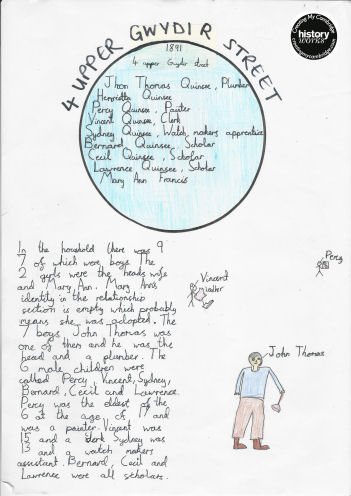 4 UPPER GWYDIR STREET
Creating My Cambridge
history
WORKS
creatingmycambridge.com
1891
4 upper Gwydir street
Jhon Thomas Quinsee, Plumber
Henrietta Quinsee
Percy Quinsee Painter
Vincent Quinsee, Clerk
Sydney Quinsee, Watch makers apprentice
Bernard Quinsee, Scholar
Cecil Quinsee, Scholar
Lawrence Quinsee, Scholar
Mary Ann Francis
In the houshold there was 9
7 of which were boys. The
2 gyrls were the heads wife
and Mary Ann. Mary Ann's
identity in the relationship
section is empty which probably
means she was adopted. The
7 boys John Thomas was
one of then and he was the
head and a plumber. The
6 male children were
called Percy, Vincent, Sydney,
Bernard, Cecil and Lawrence.
Percy was the oldest of the
6 at the age of 17 and
was a painter. Vincent was
15 and a clerk Sydney was
13 and a watch makers
assistant. Bernard, Cecil and
Lawrence were all scholars.
Percy
Vincent
John Thomas